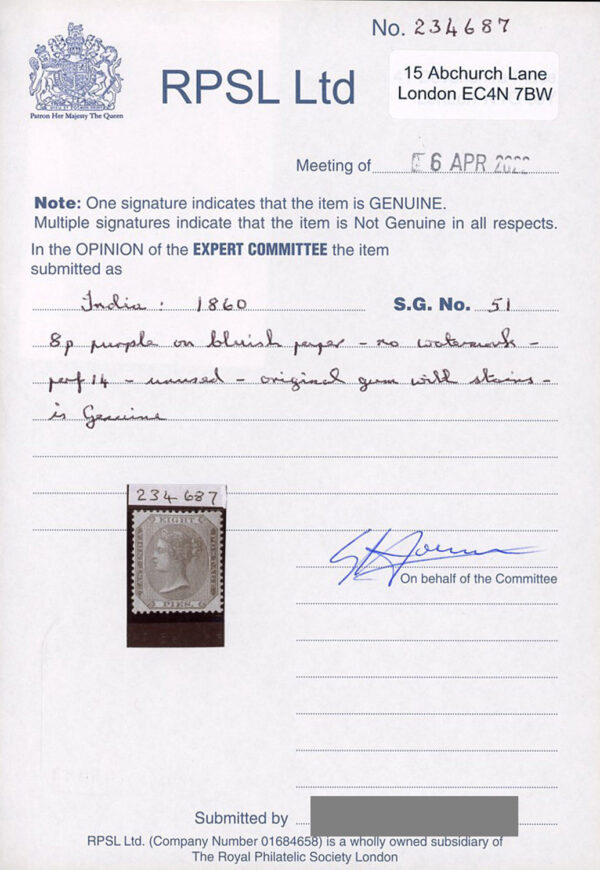 No. 234687
RPSL Ltd
15 Abchurch Lane
London EC4N 7BW
Patron Her Majesty The Queen
Meeting of 6 APR 2022
Note: One signature indicates that the item is GENUINE.
Multiple signatures indicate that the item is Not Genuine in all respects.
In the OPINION of the EXPERT COMMITTEE the item
submitted as
India: 1860 S.G. No. 51
8p purple on bluish paper - no watermark -
perf 14 - unused - original gum with stains -
is Genuine
234687
EIGHT
PIES.
On behalf of the Committee
Submitted by
RPSL Ltd. (Company Number 01684658) is a wholly owned subsidiary of
The Royal Philatelic Society London